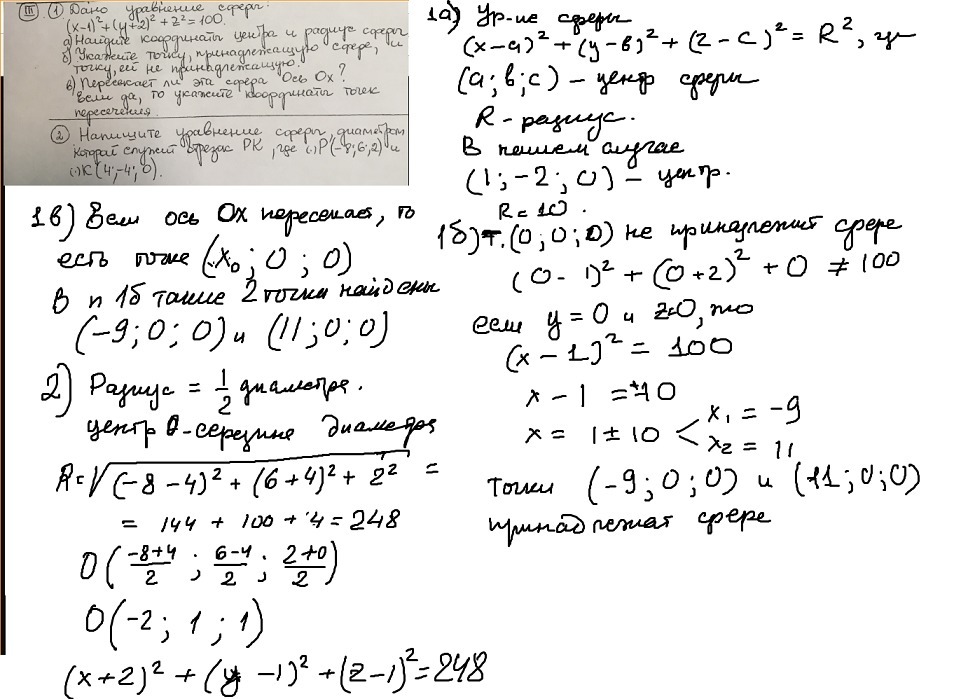 III ① Дано уравнение сферы:
(x-1)² + (y+2)² + z² = 100.
а) Найдите координаты центра и радиус сферы
б) Укажите точку, принадлежащую сфере, и
точку, ей не принадлежащую.
в) Пересекает ли эта сфера ось Ox?
Если да, то укажите координаты точек
пересечения.
② Напишите уравнение сферы, диаметром
которой служит отрезок PK, где (·)P(-8; 6; 2) и
(·)K(4; -4; 0).
1а) Ур-ие сферы
(x-a)² + (y-в)² + (z-c)² = R², где
(a; в; c) – центр сферы
R - радиус.
В нашем случае
(1; -2; 0) – центр.
R = 10.
1б) т. (0; 0; 0) не принадлежит сфере
(0-1)² + (0+2)² + 0 ≠ 100
если y = 0 и z=0, то
(x-1)² = 100
x - 1 = ±10
x = 1 ± 10 < x₁ = -9
x₂ = 11
точки (-9; 0; 0) и (11; 0; 0)
принадлежат сфере
1в) Если ось Ox пересекает, то
есть точке (x₀; 0; 0)
В п 1б такие 2 точки найдены
(-9; 0; 0) и (11; 0; 0)
2) Радиус = 1/2 диаметра.
центр O-середине диаметра
R = √(-8-4)² + (6+4)² + 2² =
= 144 + 100 + 4 = 248
O(-8+4/2 ; 6-4/2 ; 2+0/2)
O(-2; 1; 1)
(x+2)² + (y-1)² + (z-1)² = 248